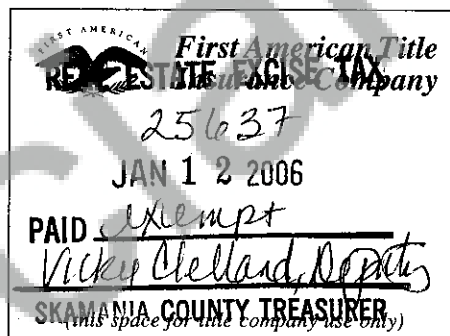 FIRST AMERICAN
First American Title
Insurance Company
REAL ESTATE EXCISE TAX
25637
JAN 12 2006
PAID exempt
Vickie Clelland, Deputy
SKAMANIA COUNTY TREASURER
(this space for title company use only)